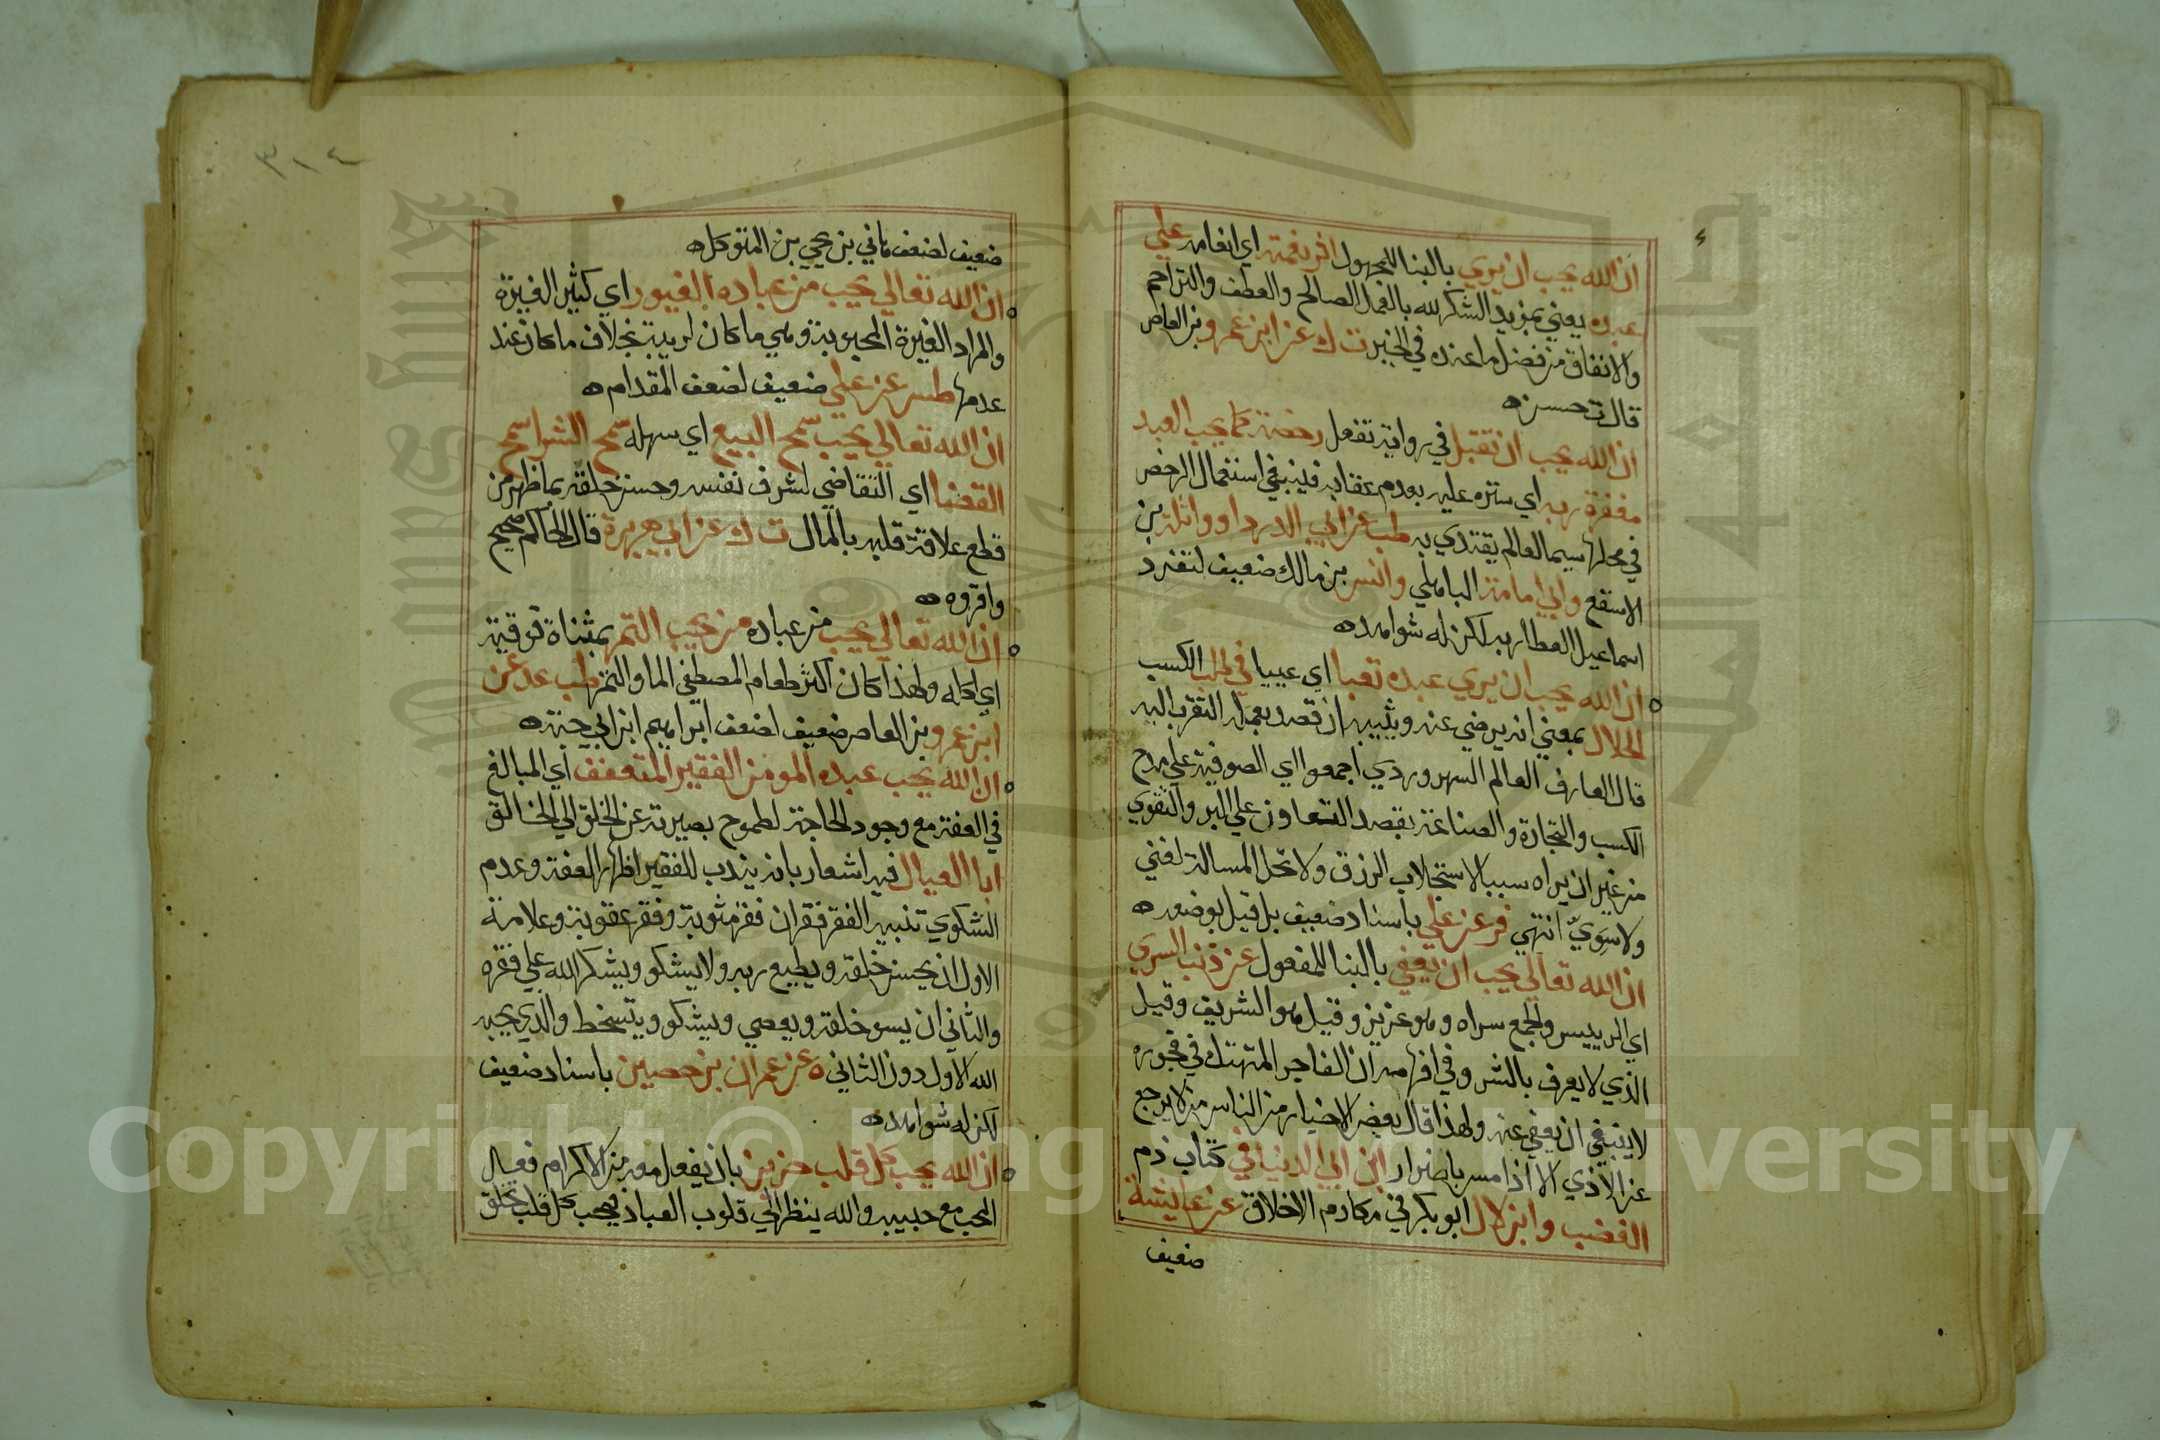 ان الله يحب ان يري بالبنا للمجهول اثر نعمته اي انعامه علي
عبده يعني بمزيد الشكر لله بالعمل الصالح والعطف والتراحم
والانفاق من فضل ما عنده في الخير ت ك عن ابن عمرو بن العاص
قال ت حسن ه
ان الله يحب ان تقبل في رواية تفعل رخصه كما يحب العبد
مغفرة ربه اي ستره عليه بعدم عقابه فينبغي استعمال الرخص
في محلها سيما لعالم يقتدي به طب عن ابي الدرداء وواثلة بن
الاسقع وابي امامة الباهلي وانس بن مالك ضعيف لتفرد
اسماعيل العطار به لكن له شواهد ه
ان الله يحب ان يري عبده تعبا اي عييا في طلب الكسب
الحلال بمعني انه يرضي عنه ويثيبه ان قصد بعمله التقرب اليه
قال العارف العالم السهروردي اجمعوا اي الصوفية علي مدح
الكسب والتجارة والصناعة بقصد التعاون علي البر والتقوي
من غير ان يراه سببا لاستجلاب الرزق ولا تحل المسالة لغني
ولا سَوِيّ انتهي فر عن علي باسناد ضعيف بل قيل بوضعه ه
ان الله تعالي يحب ان يعفي بالبنا للمفعول عن ذنب السري
اي الرييس والجمع سراه وهو عزيز وقيل هو الشريف وقيل
الذي لا يعرف بالشر وفي افهامه ان الفاجر المتهتك في فجوره
لا ينبغي ان يعفي عنه ولهذا قال بعض الاخيار من الناس من لا يرجع
عن الاذي الا اذا مس باضرار ابن ابي الدنيا في كتاب ذم
الغضب وابن لال ابو بكر في مكارم الاخلاق عن عايشة
ضعيف
٣١٤
ضعيف لضعف هاني بن يحيي بن المتوكل ه
ان الله تعالي يحب من عباده الغيور اي كثير الغيرة
والمراد الغيرة المحبوبة وهي ما كان لريبة بخلاف ما كان عند
عدمها طس عن علي ضعيف لضعف المقدام ه
ان الله تعالي يحب سمح البيع اي سهله سمح الشرا سمح
القضا اي التقاضي لشرف نفسه وحسن خلقه بما ظهر من
قطع علاقة قلبه بالمال ت ك عن ابي هريرة قال الحاكم صحيح
واقروه ه
ان الله تعالي يحب من عباده من يحب التمر بمثناة فوقية
اي اكله ولهذا كان اكثر طعام المصطفي الما والتمر طب عد عن
ابن عمرو بن العاص ضعيف لضعف ابراهيم ابن ابي حبة ه
ان الله يحب عبده المومن الفقير المتعفف اي المبالغ
في العفة مع وجود الحاجة لطموح بصيرته عن الخلق الي الخالق
ابا العيال فيه اشعار بانه يندب للفقير اظهار العفة وعدم
الشكوي تنبيه الفقر فقران فقر مثوبة وفقر عقوبة وعلامة
الاول ان يحسن خلقه ويطيع ربه ولا يشكو ويشكر الله علي فقره
والثاني ان يسو خلقه ويعصي ويشكو ويتسخط والذي يحبه
الله الاول دون الثاني ه عن عمران بن حصين باسناد ضعيف
لكن له شواهد ه
ان الله يحب كل قلب حزين بان يفعل معه من الاكرام فعل
المحب مع حبيبه والله ينظر الي قلوب العباد فيحب كل قلب تخلق
Copyright © King Saud University